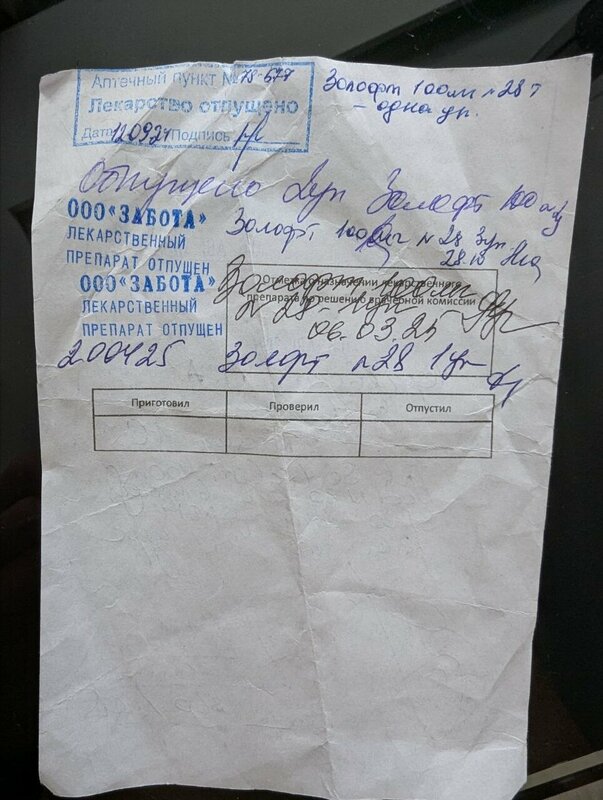 Аптечный пункт № 78-577
Лекарство отпущено
Дата 120924 Подпись
Золофт 100мг №28т
– одна уп.
Отпущено 2уп Золофт 100мг
ООО «ЗАБОТА»
ЛЕКАРСТВЕННЫЙ
ПРЕПАРАТ ОТПУЩЕН
Золофт 100мг №28 3уп
28.10
ООО «ЗАБОТА»
ЛЕКАРСТВЕННЫЙ
ПРЕПАРАТ ОТПУЩЕН
Отметки о назначении лекарственного
препарата по решению врачебной комиссии
Золофт 100мг
№ 28
06.03.25
200425 Золофт №28 1уп
Приготовил Проверил Отпустил